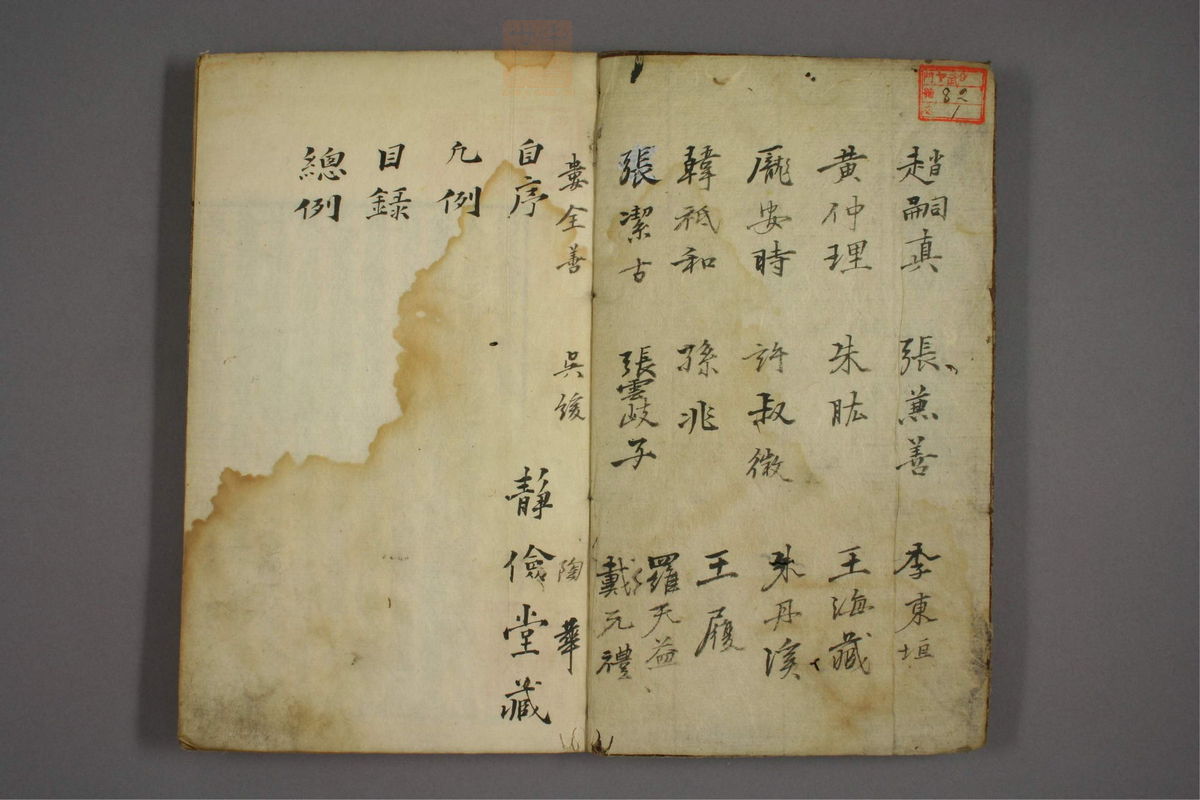 趙嗣真 張兼善 李東垣
黄仲理 朱肱 王海藏
龐安時 許叔微 朱丹溪
韓祗和 孫兆 王履
張潔古 張雲岐子 羅天益
戴元禮
婁全善 吳綬 陶華
自序
凡例
目錄
總例
靜儉堂藏
82
1